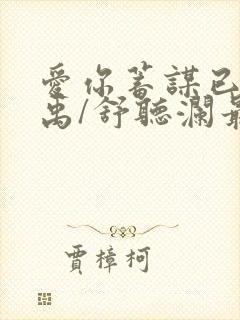 愛你蓄謀已
禹/舒聽瀾最
賈樟柯